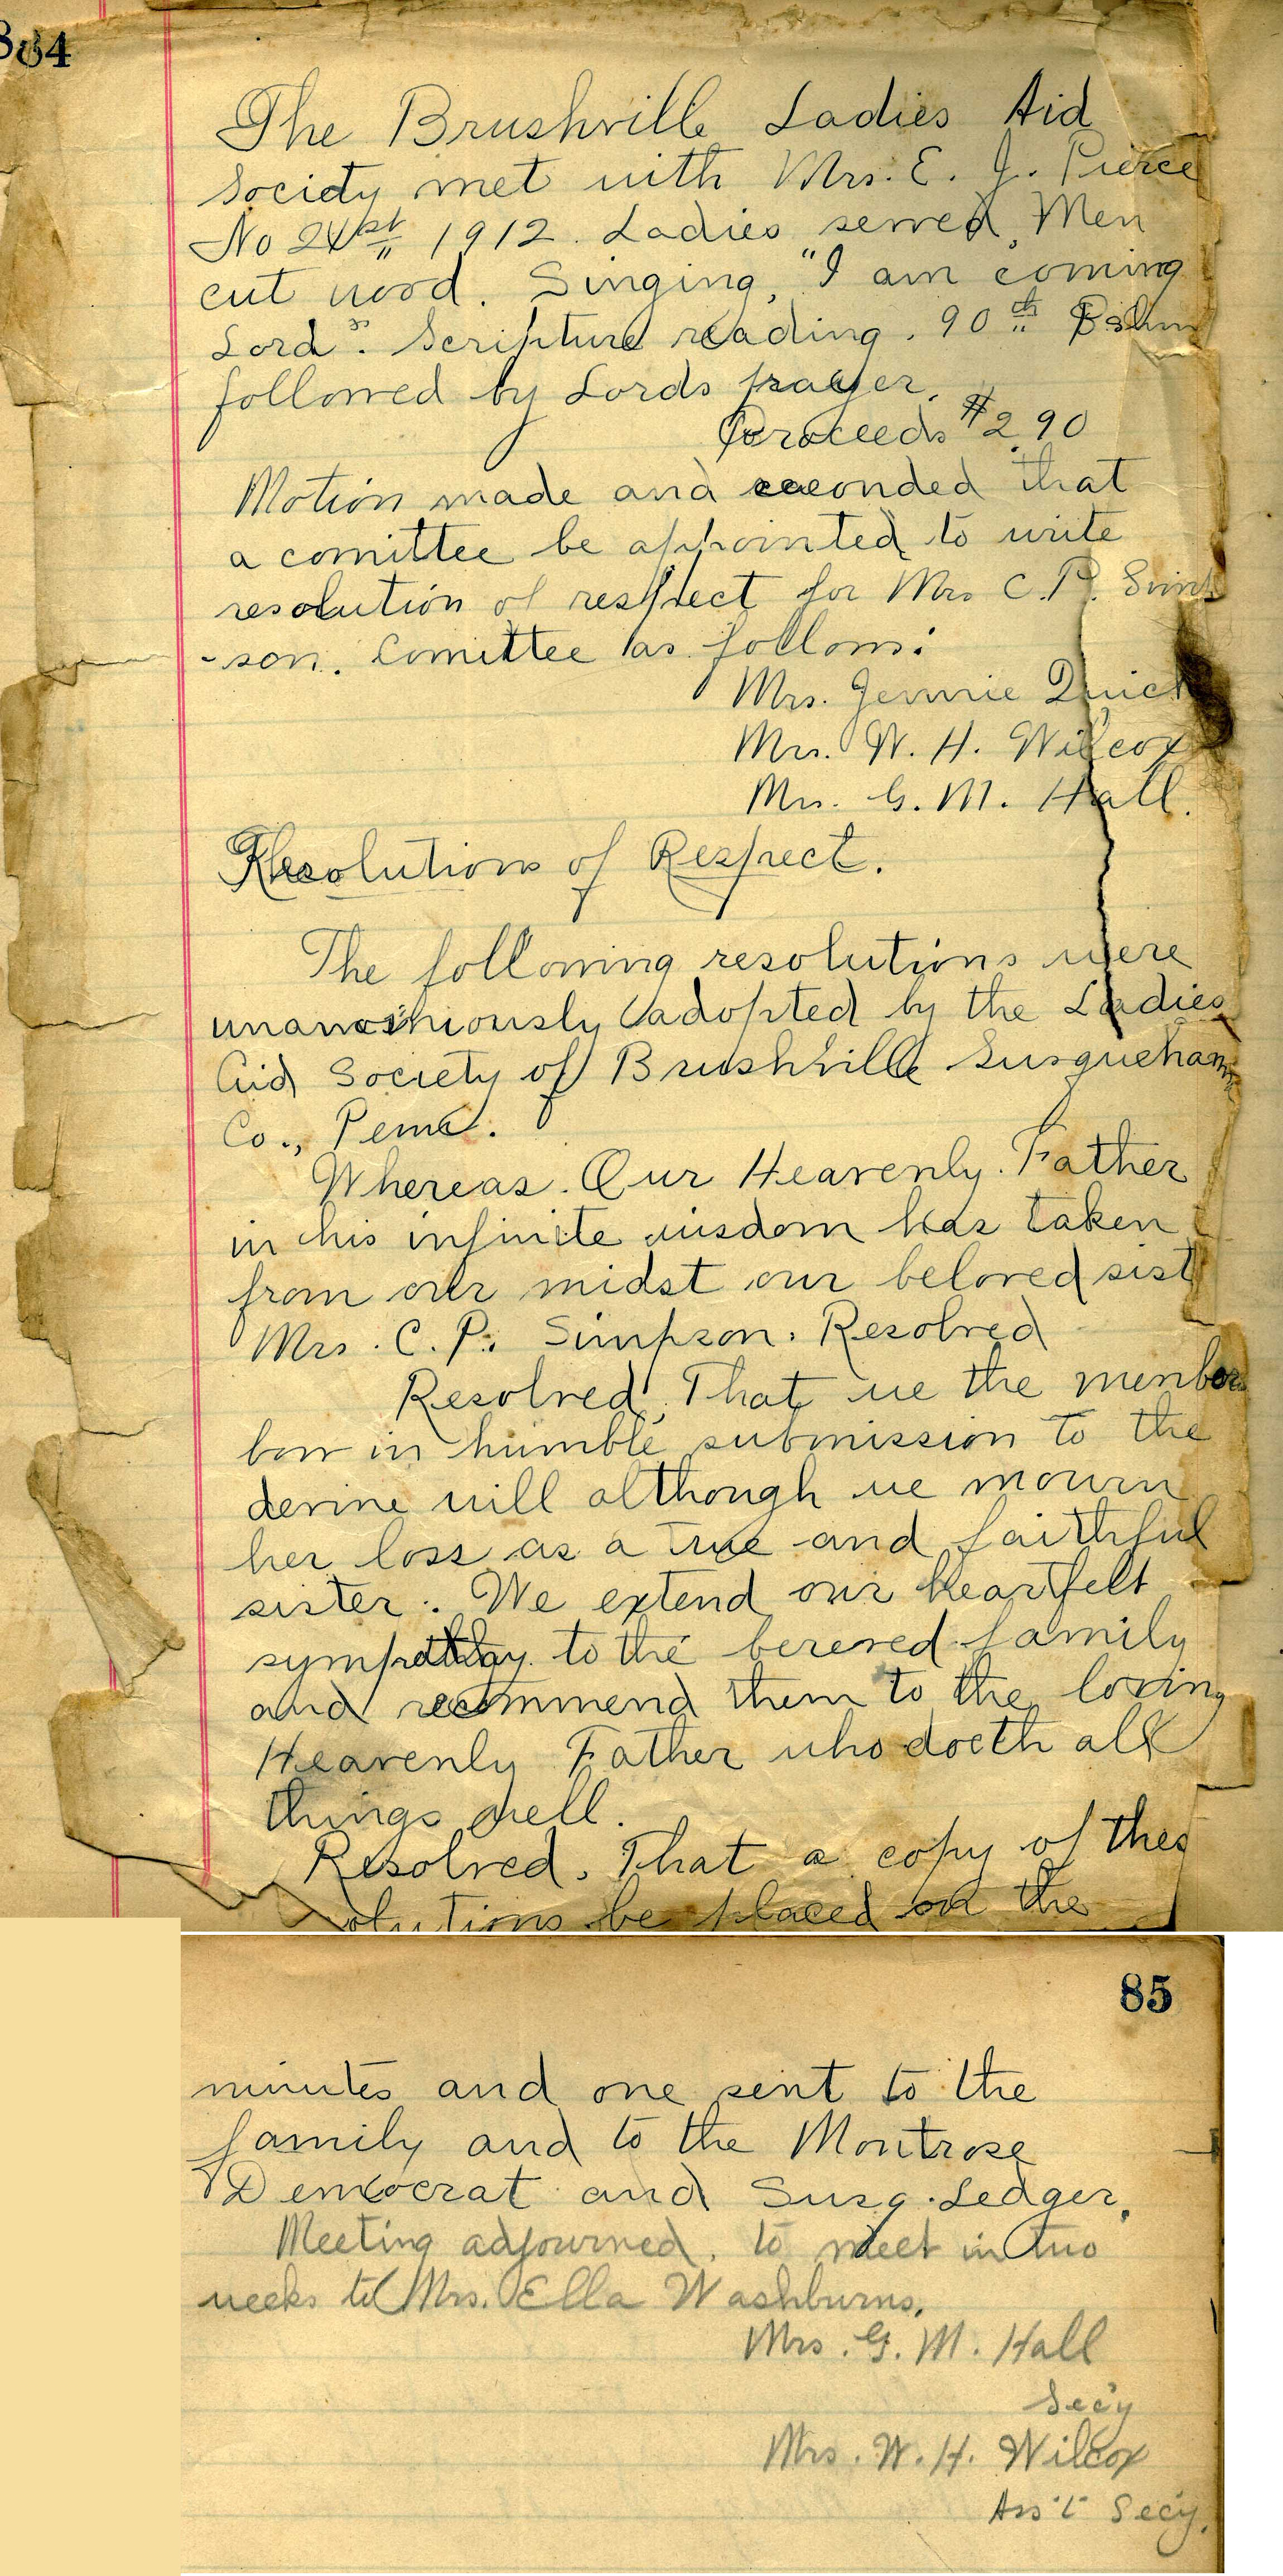 84
The Brushville Ladies Aid
Society met with Mrs. E. J. Pierce
No 24st 1912. Ladies served, Men
cut wood. Singing, "I am coming
Lord". Scripture reading. 90th Pslm
followed by Lords prayer.
Proceeds $2.90
Motion made and seconded that
a comittee be appointed to write
resolution of respect for Mrs C. P. Simp
-son. Comittee as follows:
Mrs. Jennie Quick
Mrs. W. H. Wilcox
Mrs. G. M. Hall.
Resolutions of Respect.
The following resolutions were
unanimiously adopted by the Ladies
Aid Society of Brushville Susquehanna
Co., Penna.
Whereas. Our Heavenly Father
in his infinite wisdom has taken
from our midst our beloved sist
Mrs. C. P. Simpson. Resolved
Resolved, That we the members
bow in humble submission to the
devine will although we mourn
her loss as a true and faithful
sister. We extend our heartfelt
sympathy to the bereved family
and recommend them to the loving
Heavenly Father who doeth all
things well.
Resolved, That a copy of thes
olutions be placed on the
85
minutes and one sent to the
family and to the Montrose
Democrat and Susq. Ledger.
Meeting adjourned, to meet in two
weeks to Mrs. Ella Washburns.
Mrs. G. M. Hall
Sec'y
Mrs. W. H. Wilcox
Ass't Sec'y.